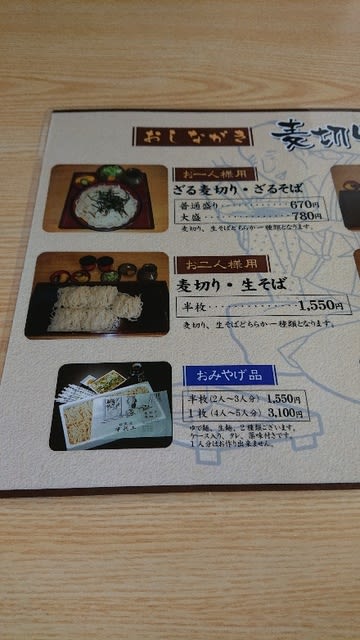 おしながき
麦切り
お一人様用
ざる麦切り・ざるそば
普通盛り・・・・・・・・・・670円
大盛・・・・・・・・・・・・780円
麦切り、生そばどちらか一種類となります。
お二人様用
麦切り・生そば
半枚・・・・・・・・・・1,550円
麦切り、生そばどちらか一種類となります。
おみやげ品
半枚(2人〜3人分) 1,550円
1枚(4人〜5人分) 3,100円
ゆで麺、生麺、2種類ございます。
ケース入り、タレ、薬味付きです。
1人分はお作り出来ません。